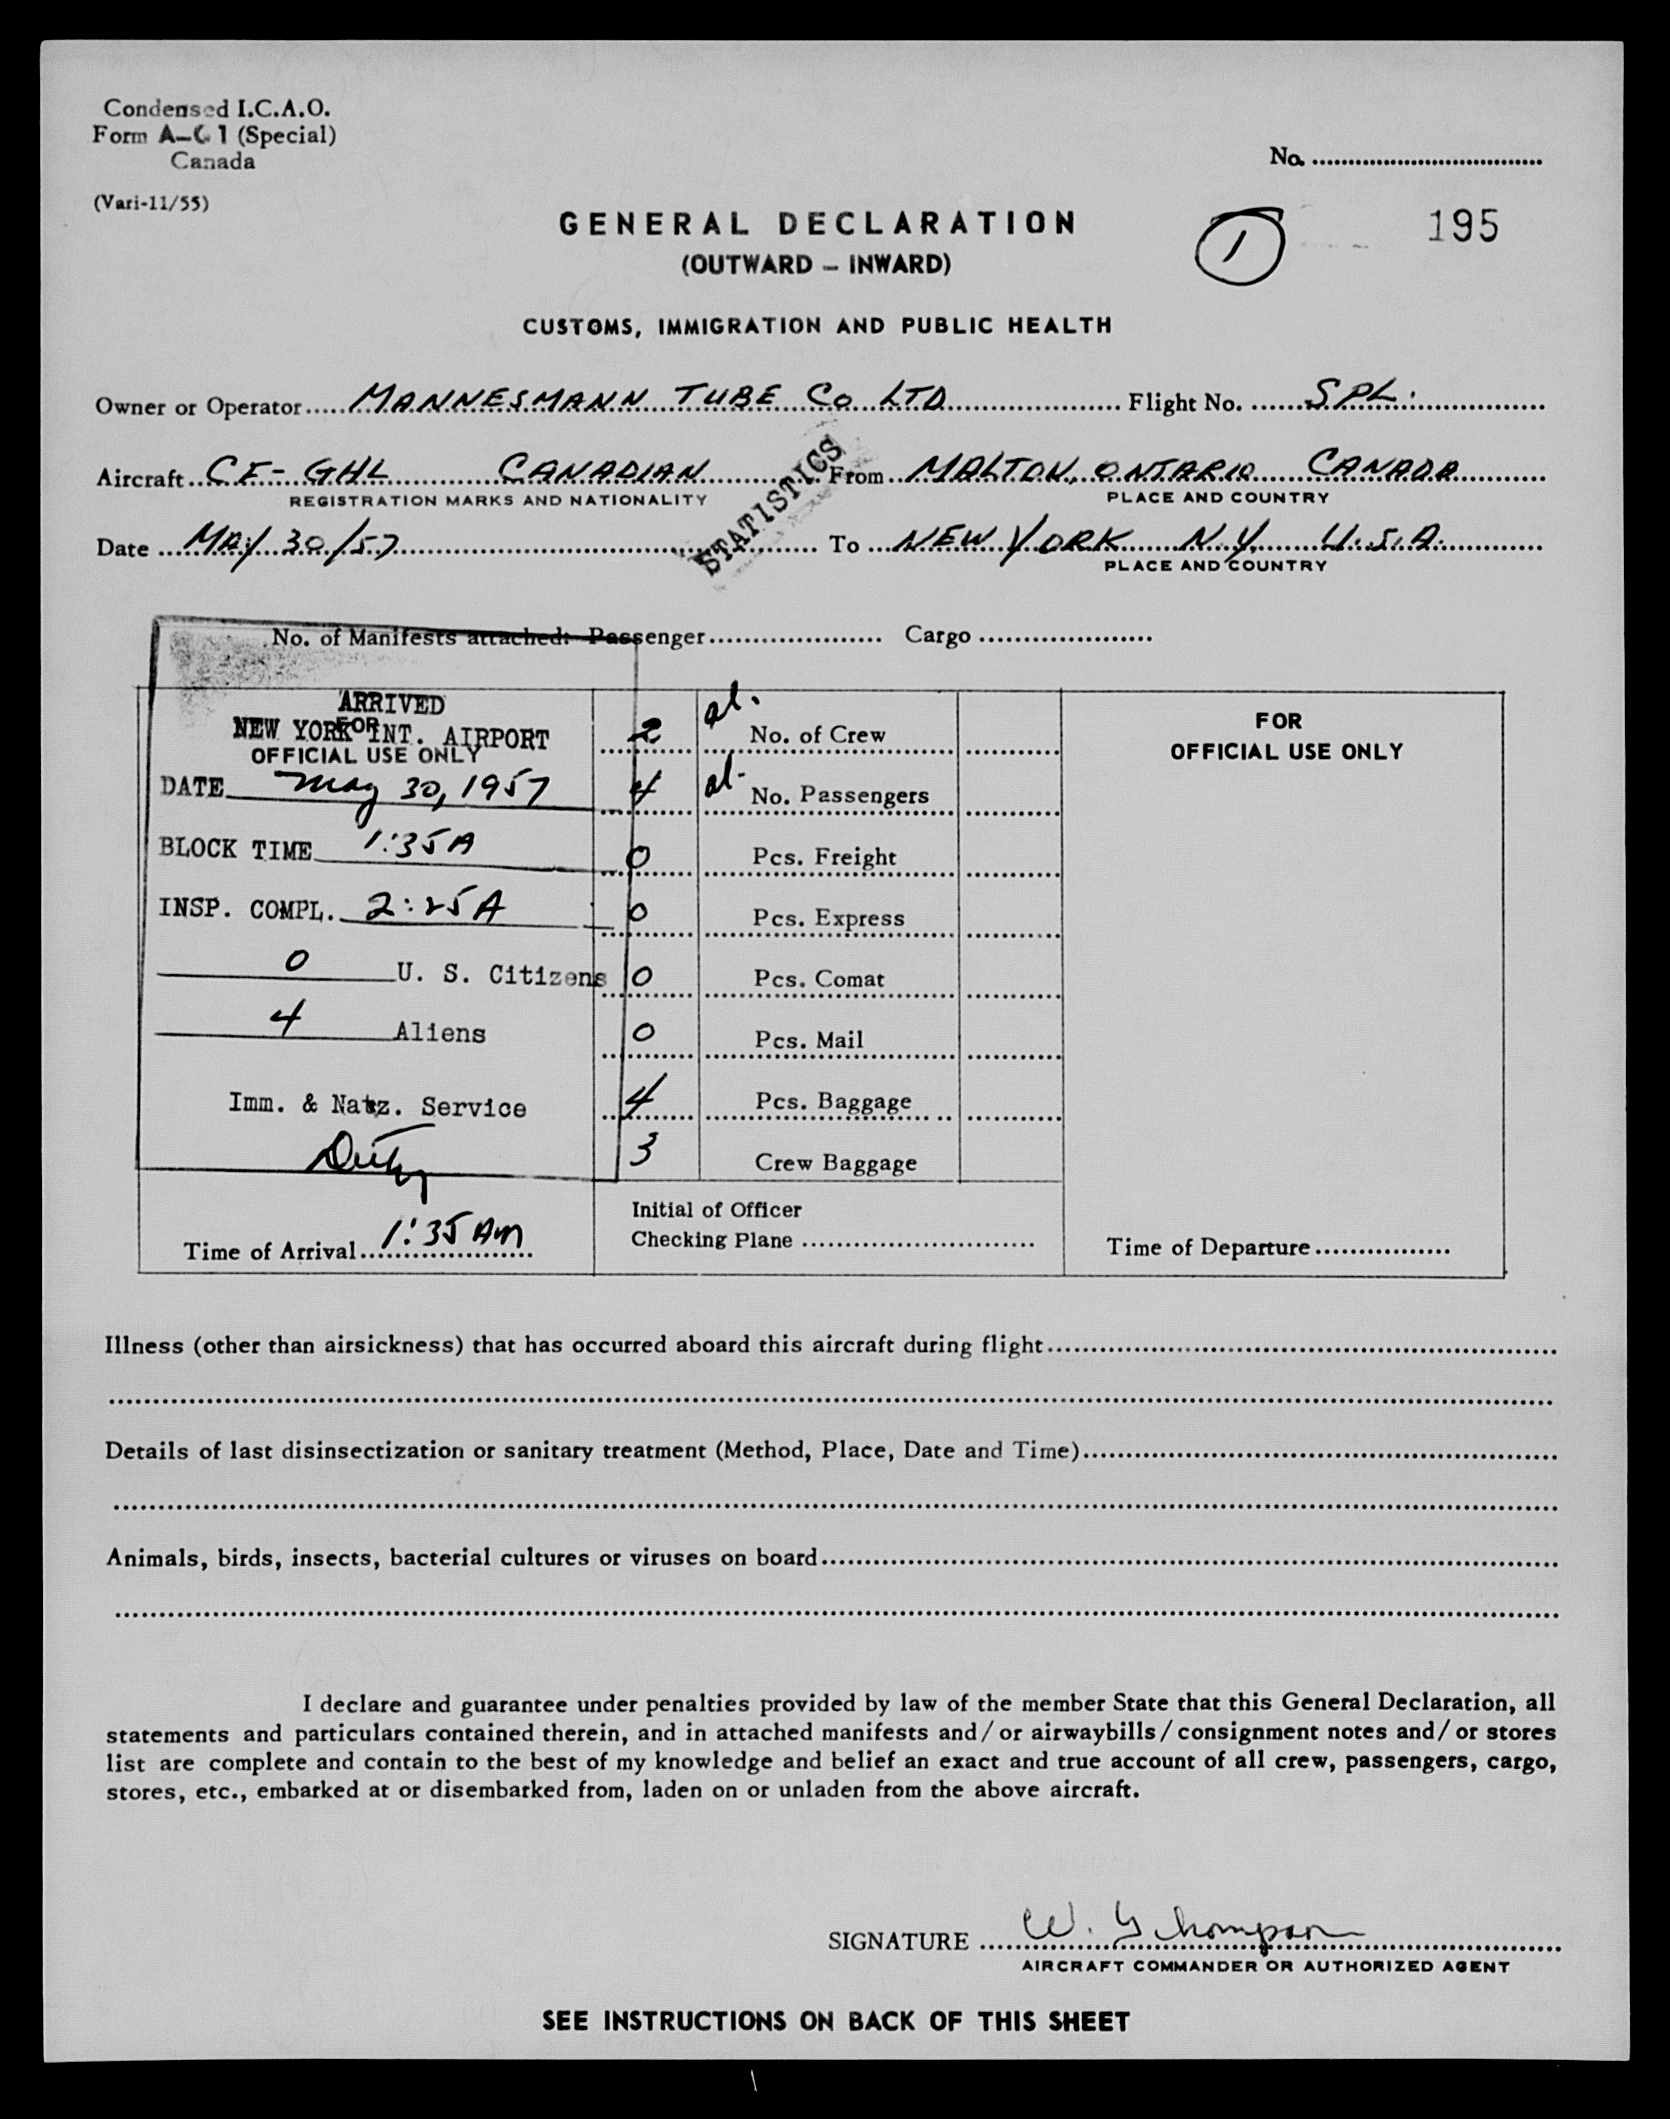 Condensed I.C.A.O.
Form A-G 1 (Special)
Canada
(Vari-11/55)
No. ................................
195
1
GENERAL DECLARATION
(OUTWARD – INWARD)
CUSTOMS, IMMIGRATION AND PUBLIC HEALTH
Owner or Operator..... MANNESMANN TUBE Co LTD Flight No. ...... SPL.
Aircraft.. CF-GHL CANADIAN From.. MALTON, ONTARIO CANADA
REGISTRATION MARKS AND NATIONALITY PLACE AND COUNTRY
STATISTICS
Date .... MAY 30/57 To ... NEW YORK N.Y. U.S.A.
PLACE AND COUNTRY
No. of Manifests attached: Passenger.................... Cargo ....................
ARRIVED
NEW YORK INT. AIRPORT
FOR
OFFICIAL USE ONLY
DATE May 30, 1957
BLOCK TIME 1:35A
INSP. COMPL. 2:25A
0 U. S. Citizens
4 Aliens
Imm. & Natz. Service
Time of Arrival.. 1:35 AM
2 al. No. of Crew
4 al. No. Passengers
0 Pcs. Freight
0 Pcs. Express
0 Pcs. Comat
0 Pcs. Mail
4 Pcs. Baggage
3 Crew Baggage
Initial of Officer
Checking Plane ...........................
FOR
OFFICIAL USE ONLY
Time of Departure................
Illness (other than airsickness) that has occurred aboard this aircraft during flight............................................................
Details of last disinsectization or sanitary treatment (Method, Place, Date and Time)........................................................
Animals, birds, insects, bacterial cultures or viruses on board......................................................................................
I declare and guarantee under penalties provided by law of the member State that this General Declaration, all
statements and particulars contained therein, and in attached manifests and/or airwaybills/consignment notes and/or stores
list are complete and contain to the best of my knowledge and belief an exact and true account of all crew, passengers, cargo,
stores, etc., embarked at or disembarked from, laden on or unladen from the above aircraft.
SIGNATURE ..... W. Thompson
AIRCRAFT COMMANDER OR AUTHORIZED AGENT
SEE INSTRUCTIONS ON BACK OF THIS SHEET